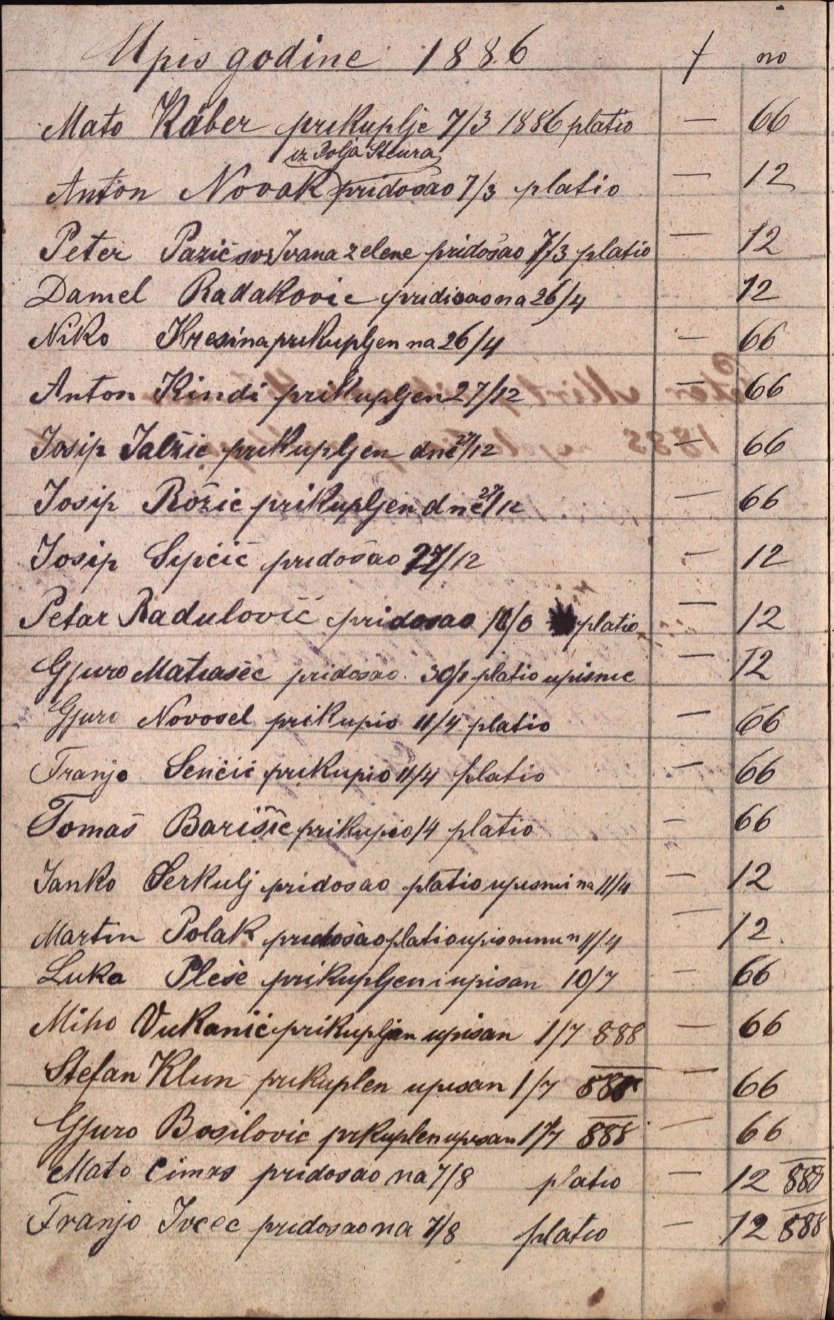 Upis godine 1886 f no
Mato Kaber prikuplje 7/3 1886 platio — 66
iz Polja
Anton Novak pridošao 7/3 platio — 12
Peter Pazič Ivana zelene pridošao 7/3 platio — 12
Damel Radakovic pridisao na 26/4 12
Niko Kresina prikupljen na 26/4 — 66
Anton Kindi prikupljen 27/12 — 66
Josip Jalžic prikupljen dne 27/12 — 66
Josip Božic prikupljen dne 27/12 — 66
Josip pridošao 27/12 — 12
Petar Radulović pridosao 18/8 platio — 12
Gjuro pridosao platio upisnic — 12
Gjuro Novosel prikupio 11/4 platio — 66
Franjo Senčić prikupio 11/4 platio — 66
Tomaš Barišic prikupio /4 platio — 66
Janko Serkulj pridosao platio na 11/4 — 12
Martin Polak pridošao platio 11/4 — 12
Luka Pleše prikupljen i upisan 10/7 — 66
Miho Vukanić prikupljen upisan 1/7 888 — 66
Stefan Klun prikuplen upisan 1/7 888 — 66
Gjuro Bosilovic prkuplen upisan 1/7 888 — 66
Mato pridosao na 7/8 platio — 12 888
Franjo Ivcec pridosao na 7/8 platio — 12 888